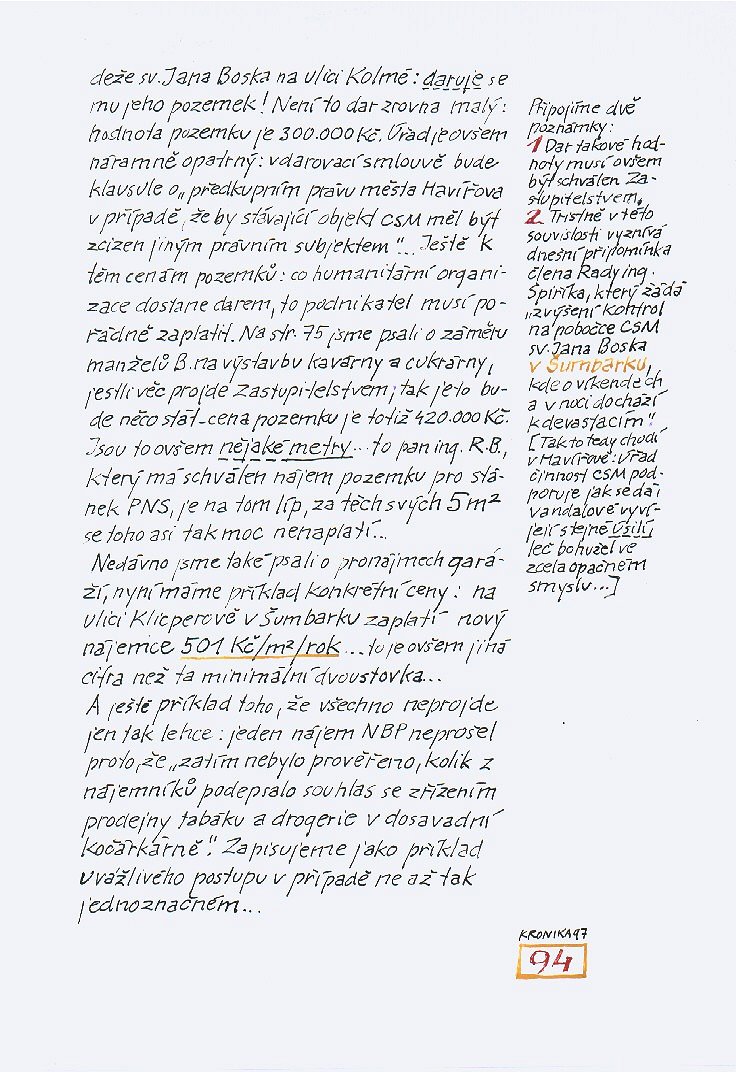 deže sv. Jana Boska na ulici Kolmé: daruje se
mu jeho pozemek! Není to dar zrovna malý:
hodnota pozemku je 300.000 Kč. Úřad je ovšem
náramně opatrný: v darovací smlouvě bude
klausule o „předkupním právu města Havířova
v případě, že by stávající objekt CSM měl být
zcizen jiným právním subjektem“... Ještě k
těm cenám pozemků: co humanitární organi-
zace dostane darem, to podnikatel musí po-
řádně zaplatit. Na str. 75 jsme psali o záměru
manželů B. na výstavbu kavárny a cukrárny,
jestli věc projde Zastupitelstvem, tak je to bu-
de něco stát - cena pozemku je totiž 420.000 Kč.
Jsou to ovšem nějaké metry... to pan ing. R.B.,
který má schválen nájem pozemku pro stá-
nek PNS, je na tom líp, za těch svých 5 m²
se toho asi tak moc nenaplatí...
Nedávno jsme také psali o pronájmech gará-
ží, nyní máme příklad konkrétní ceny: na
ulici Klicperově v Šumbarku zaplatí nový
nájemce 501 Kč/m²/rok ... to je ovšem jiná
cifra než ta minimální dvoustovka...
A ještě příklad toho, že všechno neprojde
jen tak lehce: jeden nájem NBP neprošel
proto, že „zatím nebylo prověřeno, kolik z
nájemníků podepsalo souhlas se zřízením
prodejny tabáku a drogerie v dosavadní
kočárkárně“. Zapisujeme jako příklad
uvážlivého postupu v případě ne až tak
jednoznačném...
Připojíme dvě
poznámky:
1 Dar takové hod-
noty musí ovšem
být schválen Za-
stupitelstvem.
2. Tristně v této
souvislosti vyznívá
dnešní připomínka
člena Rady ing.
Špiříka, který žádá
„zvýšení kontrol
na pobočce CSM
sv. Jana Boska
v Šumbarku,
kde o víkendech
a v noci dochází
k devastacím“.
[Tak to tedy chodí
v Havířově: Úřad
činnost CSM pod-
poruje jak se dá i
vandalové vyví-
její stejné úsilí,
leč bohužel ve
zcela opačném
smyslu...]
KRONIKA 97
94